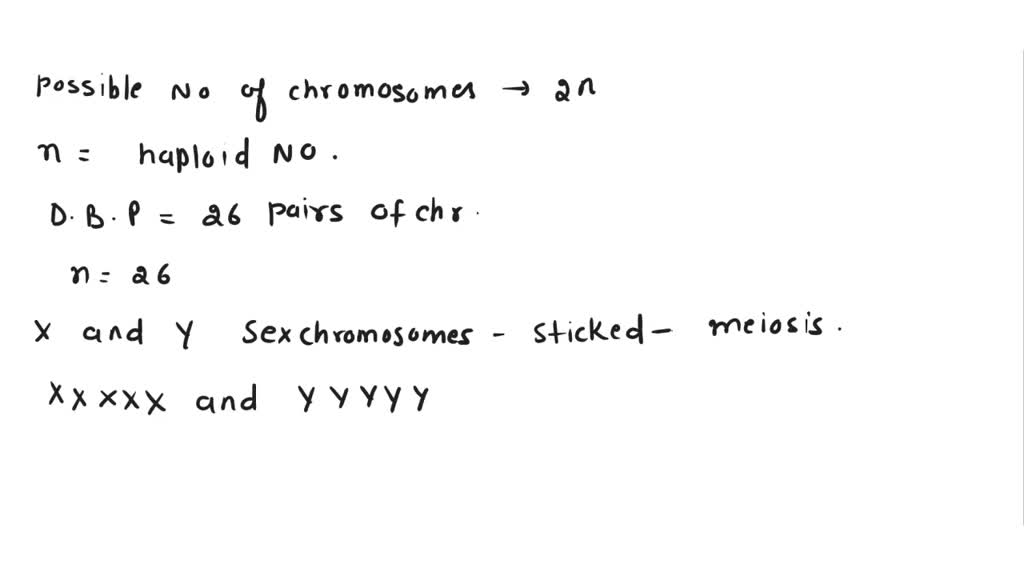 possible No of chromosomes → 2n
n = haploid NO.
D.B.P = 26 pairs of chr.
n = 26
X and Y Sex chromosomes - sticked - meiosis.
XXXXX and YYYYY